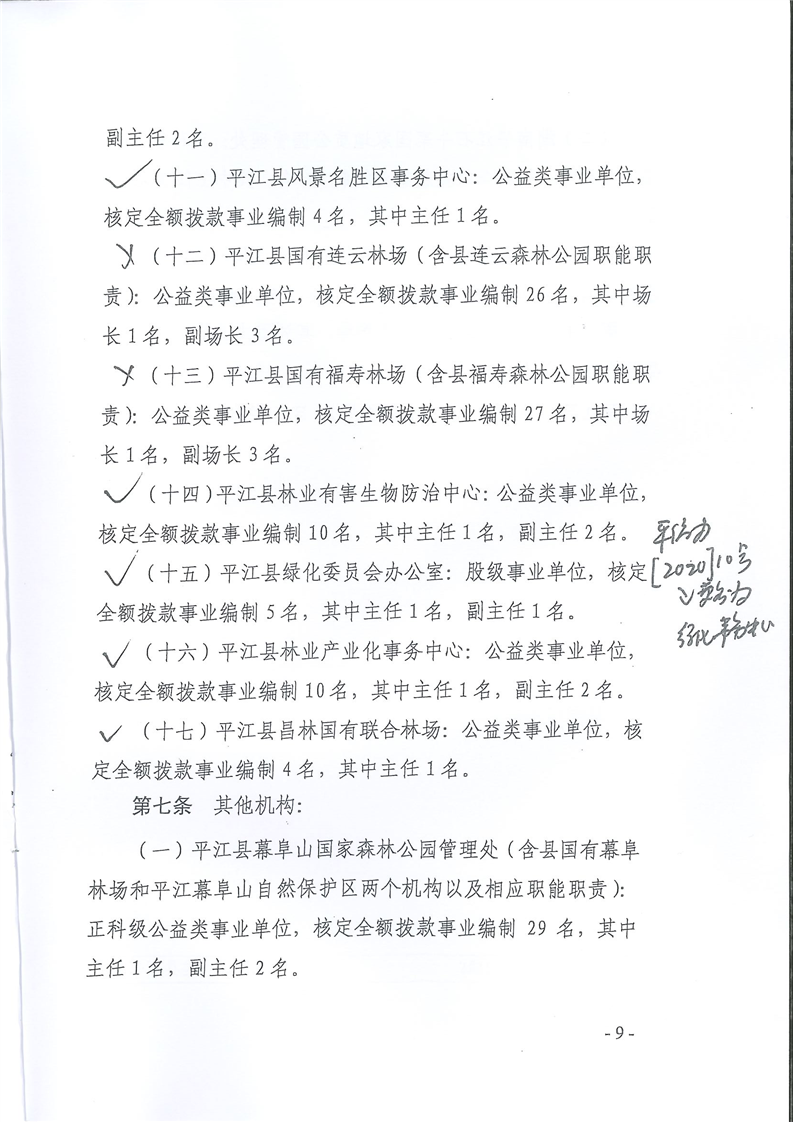 副主任2名。
(十一)平江县风景名胜区事务中心：公益类事业单位，
核定全额拨款事业编制4名，其中主任1名。
(十二)平江县国有连云林场(含县连云森林公园职能职
责)：公益类事业单位，核定全额拨款事业编制26名，其中场
长1名，副场长3名。
(十三)平江县国有福寿林场(含县福寿森林公园职能职
责)：公益类事业单位，核定全额拨款事业编制27名，其中场
长1名，副场长3名。
(十四)平江县林业有害生物防治中心：公益类事业单位，
核定全额拨款事业编制10名，其中主任1名，副主任2名。
(十五)平江县绿化委员会办公室：股级事业单位，核定
全额拨款事业编制5名，其中主任1名，副主任1名。
平编办
[2020]10号
绿化事务中心
(十六)平江县林业产业化事务中心：公益类事业单位，
核定全额拨款事业编制10名，其中主任1名，副主任2名。
(十七)平江县昌林国有联合林场：公益类事业单位，核
定全额拨款事业编制4名，其中主任1名。
第七条 其他机构：
(一)平江县幕阜山国家森林公园管理处(含县国有幕阜
林场和平江幕阜山自然保护区两个机构以及相应职能职责)：
正科级公益类事业单位，核定全额拨款事业编制 29 名，其中
主任1名，副主任2名。
-9-